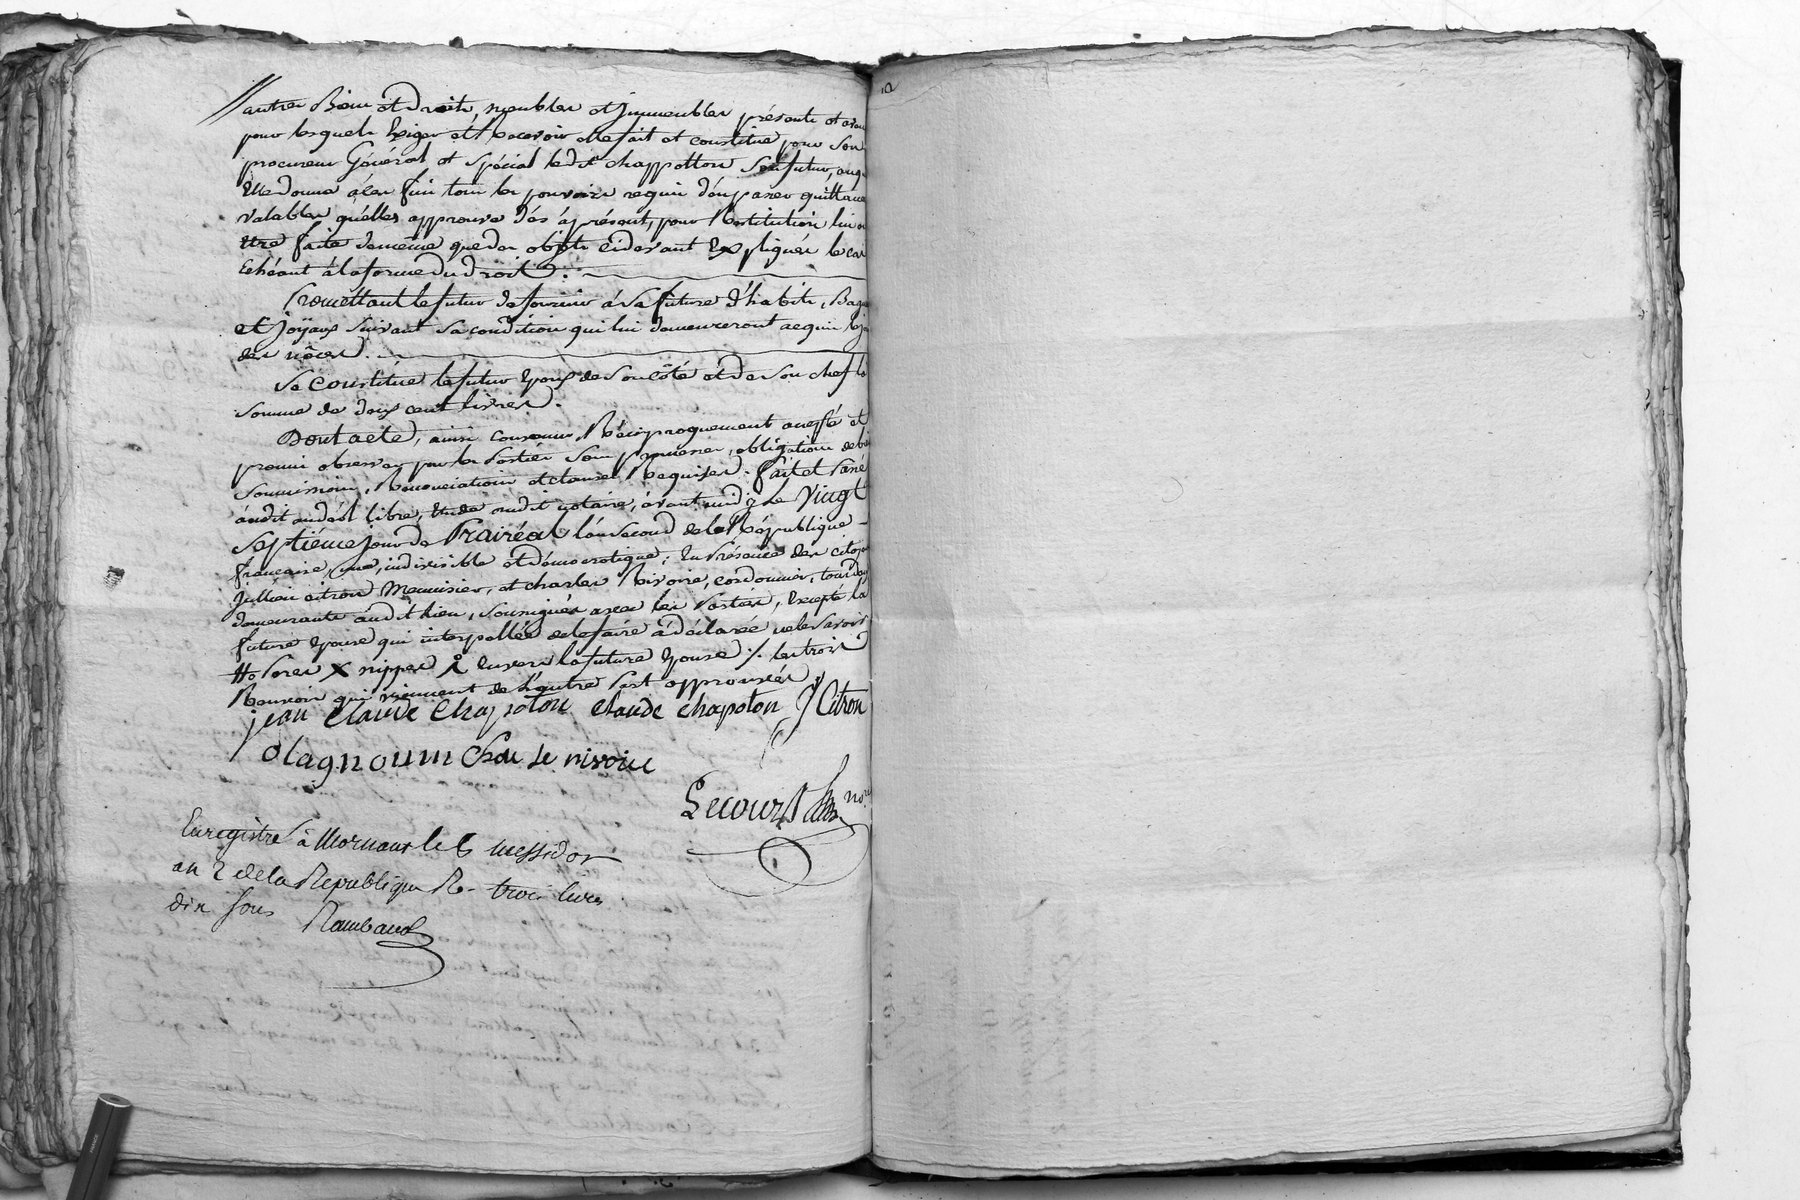 // autres Biens et droits, meubles et jmmeubles présents et avenir
pour lesquels Exiger et Recevoir elle fait et constitue pour Son
procureur Général et Spécial ledit chappotton Son futur, auquel
Elle donne à ces fins tous les pouvoirs requis d'en passer quittances
valables qu'elles approuve dès àprésent, pour Restitution lui en
Etre faite de même que des objets cidevant Expliqués le cas
Echéant à la forme du droit.
Promettant le futur de fournir à Sa future d'habits, Bagues
et Joÿaux Suivant Sa condition qui lui demeureront acquis le jour
des nôces.
Se constitue le futur Epoux de Son côté et de Son chef la
Somme de deux cent livres.
Dont acte, ainsi convenu Réciproquement accepté et
promis observer par les Parties Sous promesses, obligations de biens
Soumissions, Renonciations et clauses Requises. fait et Passé
audit andéol libre, Etude dudit notaire, avant midy Le Vingt
Septième jour de Prairéal l'an Second de la République
francaise, une, indivisible et démocratique; En Présence des citoyens
Jullien citron Menuisier, et charles Rivoire, cordonnier, tous deux
demeurants audit lieu, Soussignés avec les Parties, Excepté la
future Epouse qui interpellée de le faire à déclarée ne le Savoir
# Pores X nippes Å Envers la future Epouse ·/. les trois
Renvois qui viennent de l'autre Part approuvés
jean Claude Chapoton Claude Chapoton J Citron
Olagnoum Charle rivoire
Lecourt nore
Enregistré à Mornant le 6 messidor
an 2 de la Republique R- trois livres
dix sous Rambaud
FRANCE